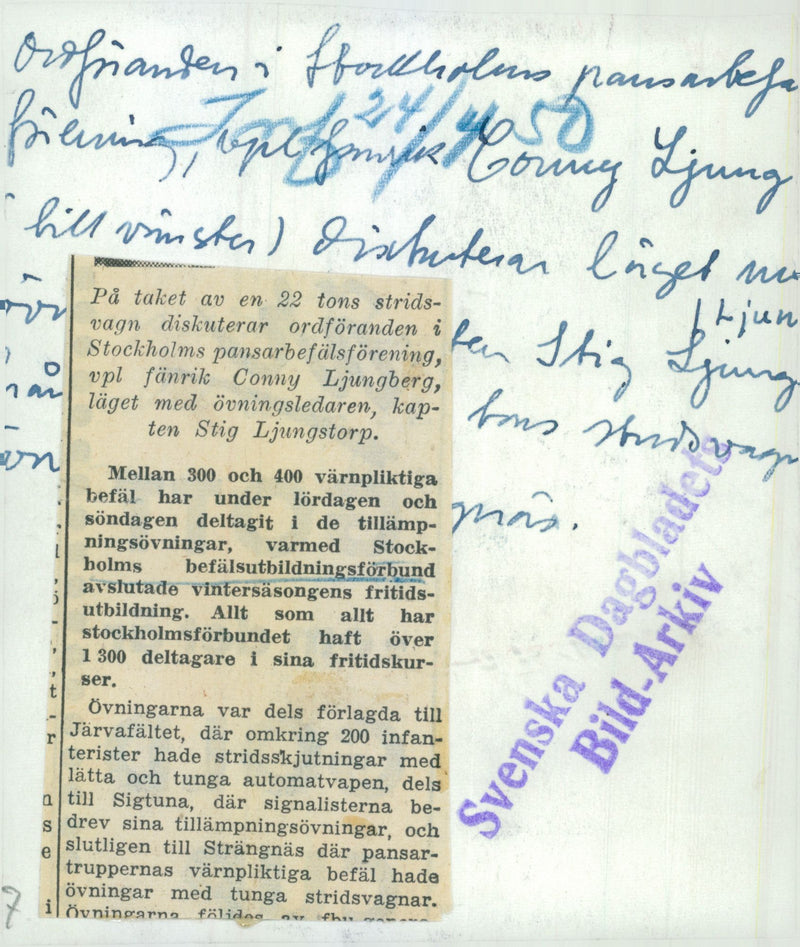 Ordföranden i Stockholms pansarbefä
förening, vpl fänrik Conny Ljung
24/4 50
till vänster) diskuterar läget
Ljun
ten Stig Ljung
tons stridsvagn
gnäs.
På taket av en 22 tons strids-
vagn diskuterar ordföranden i
Stockholms pansarbefälsförening,
vpl fänrik Conny Ljungberg,
läget med övningsledaren, kap-
ten Stig Ljungstorp.
Mellan 300 och 400 värnpliktiga
befäl har under lördagen och
söndagen deltagit i de tillämp-
ningsövningar, varmed Stock-
holms befälsutbildningsförbund
avslutade vintersäsongens fritids-
utbildning. Allt som allt har
stockholmsförbundet haft över
1 300 deltagare i sina fritidskur-
ser.
Övningarna var dels förlagda till
Järvafältet, där omkring 200 infan-
terister hade stridsskjutningar med
lätta och tunga automatvapen, dels
till Sigtuna, där signalisterna be-
drev sina tillämpningsövningar, och
slutligen till Strängnäs där pansar-
truppernas värnpliktiga befäl hade
övningar med tunga stridsvagnar.
Övningarna följdes av fbu-genera-
Svenska Dagbladets
Bild-Arkiv
7